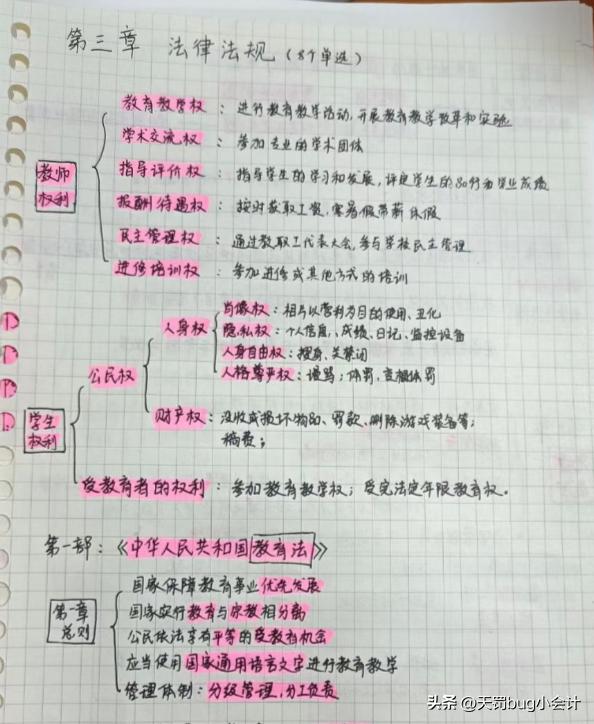 第三章 法律法规（8个单选）
教师权利
教育教学权：进行教育教学活动，开展教育教学改革和实验
学术交流权：参加专业的学术团体
指导评价权：指导学生的学习和发展，评定学生的品行和学业成绩
报酬待遇权：按时获取工资，寒暑假带薪休假
民主管理权：通过教职工代表大会，参与学校民主管理
进修培训权：参加进修或其他方式的培训
学生权利
公民权
人身权
肖像权：相片以营利为目的使用、丑化
隐私权：个人信息、成绩、日记、监控设备
人身自由权：搜身、关禁闭
人格尊严权：谩骂；体罚、变相体罚
财产权：没收或损坏物品、罚款、删除游戏装备等；
稿费；
受教育者的权利：参加教育教学权；受完法定年限教育权。
第一部：《中华人民共和国教育法》
第一章总则
国家保障教育事业优先发展
国家实行教育与宗教相分离
公民依法享有平等的受教育机会
应当使用国家通用语言文字进行教育教学
管理体制：分级管理，分工负责
头条 @天罚bug小会计